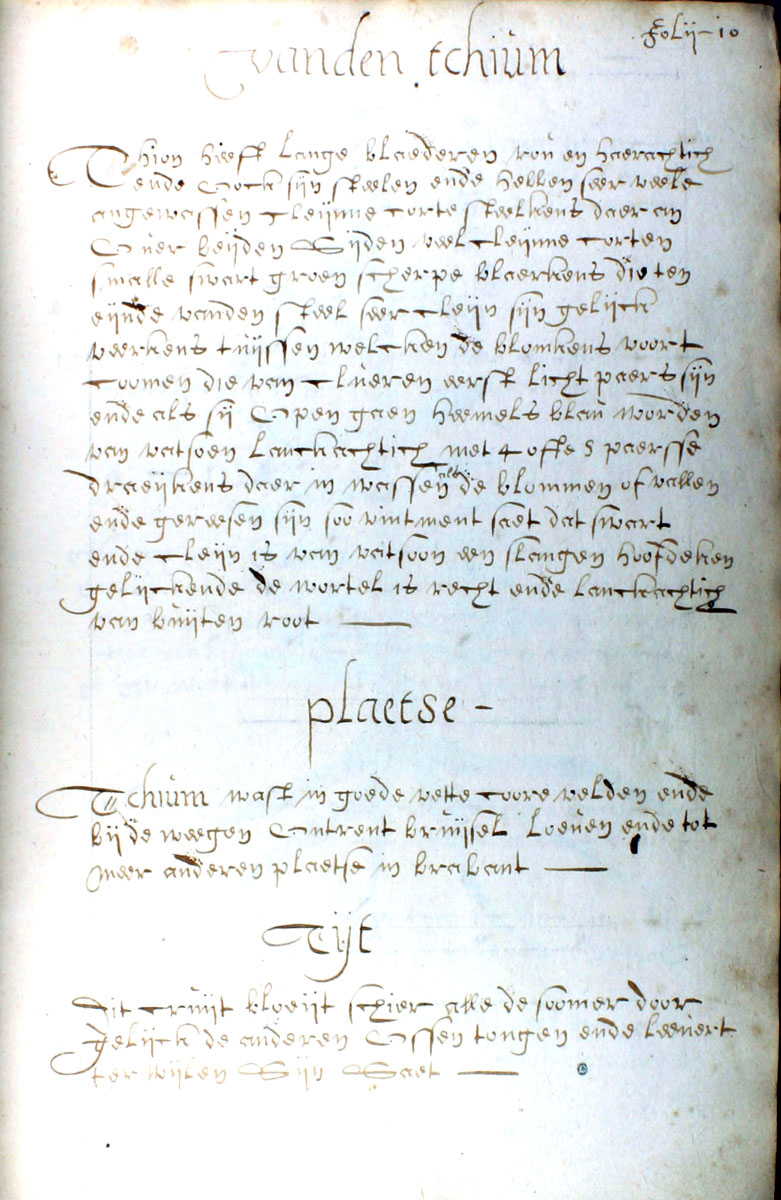 Folij 10
vanden tchiùm
Thion heeft lange blaederen roù en haerachtich
ende oock sijn steelen ende hebben seer veele
angewassen cleijnne corte steelkens daer an
over beijden sijden veel cleijnne corten
smalle swart groen scherpe blaerkens die ten
eijnde vanden steel seer cleijn sijn gelijck
veerkens tuijssen welcken de blomkens voort
coomen die van clueren eerst licht paers sijn
ende als sij open gaen heemels blaù worden
van vatsoen lanckachtich met 4 offe 5 paersse
draeijkens daer in wassen als de blommen of vallen
ende geresen sijn soo vintment saet dat swart
ende cleijn is van vatsoon een slangen hoofdeken
gelijckende de wortel is recht ende lanckachtich
van buijten root
plaetse
Tchiùm wast in goede vette coore velden ende
bij de weegen ontrent bruijsel loeven ende tot
meer anderen plaetse in brabant
Tijt
Dit cruijt bloeijt schier alle de soomer door
gelijck de anderen ossen tongen ende leevert
ter wijlen sijn saet